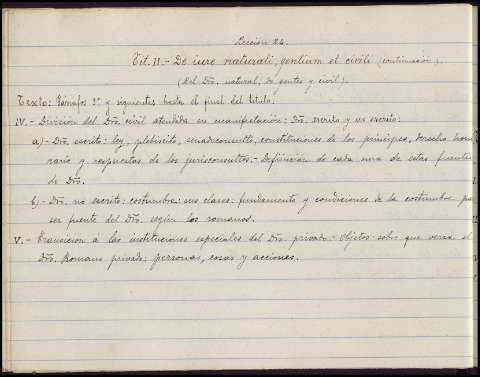 Lección 24.
Tit. II.- De iure naturali, gentium et civili (continuación).
(Del Dro. natural, de gentes y civil).
Texto: Párrafos 3º y siguientes hasta el final del título.
IV.- División del Dro. civil atendida su manifestación: Dro. escrito y no escrito:
a)- Dro. escrito: ley, plebiscito, senadoconsulto, constituciones de los príncipes, derecho honorario
y respuestas de los jurisconsultos.- Definición de cada una de estas fuentes
de Dro.
b)- Dro. no escrito: costumbre: sus clases: fundamento y condiciones de la costumbre pa
ser fuente del Dro. según los romanos.
V.- Transición á las instituciones especiales del Dro. privado.- Objetos sobre que versa el
Dro. Romano privado: personas, cosas y acciones.